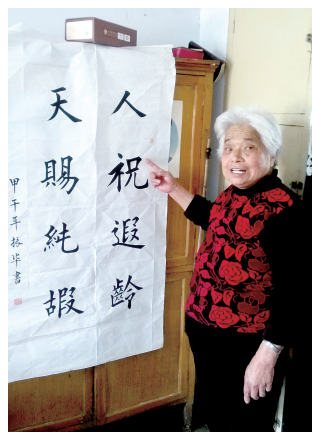 人祝遐齡
天賜純嘏
甲午年振書